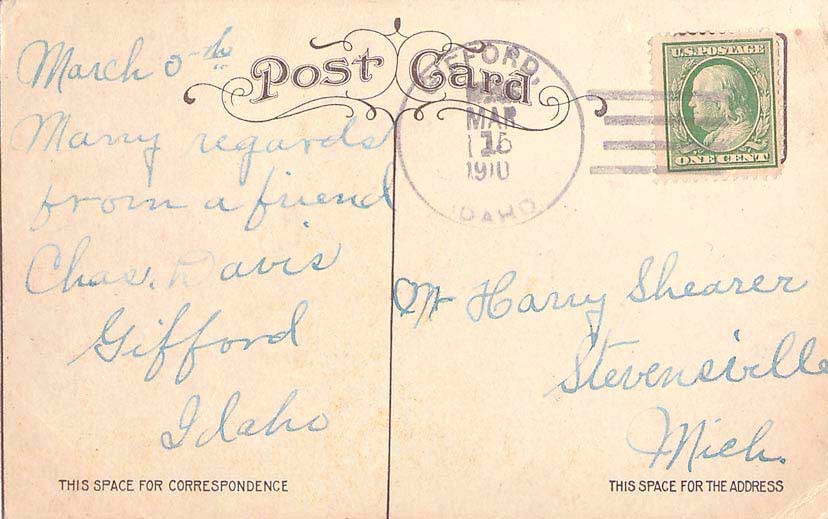 Post Card
March 5th
Many regards
from a friend
Chas. Davis
Gifford
Idaho
THIS SPACE FOR CORRESPONDENCE
GIFFORD,
MAR
15
1910
IDAHO.
U.S. POSTAGE
ONE CENT
Mr Harry Shearer
Stevensville
Mich.
THIS SPACE FOR THE ADDRESS